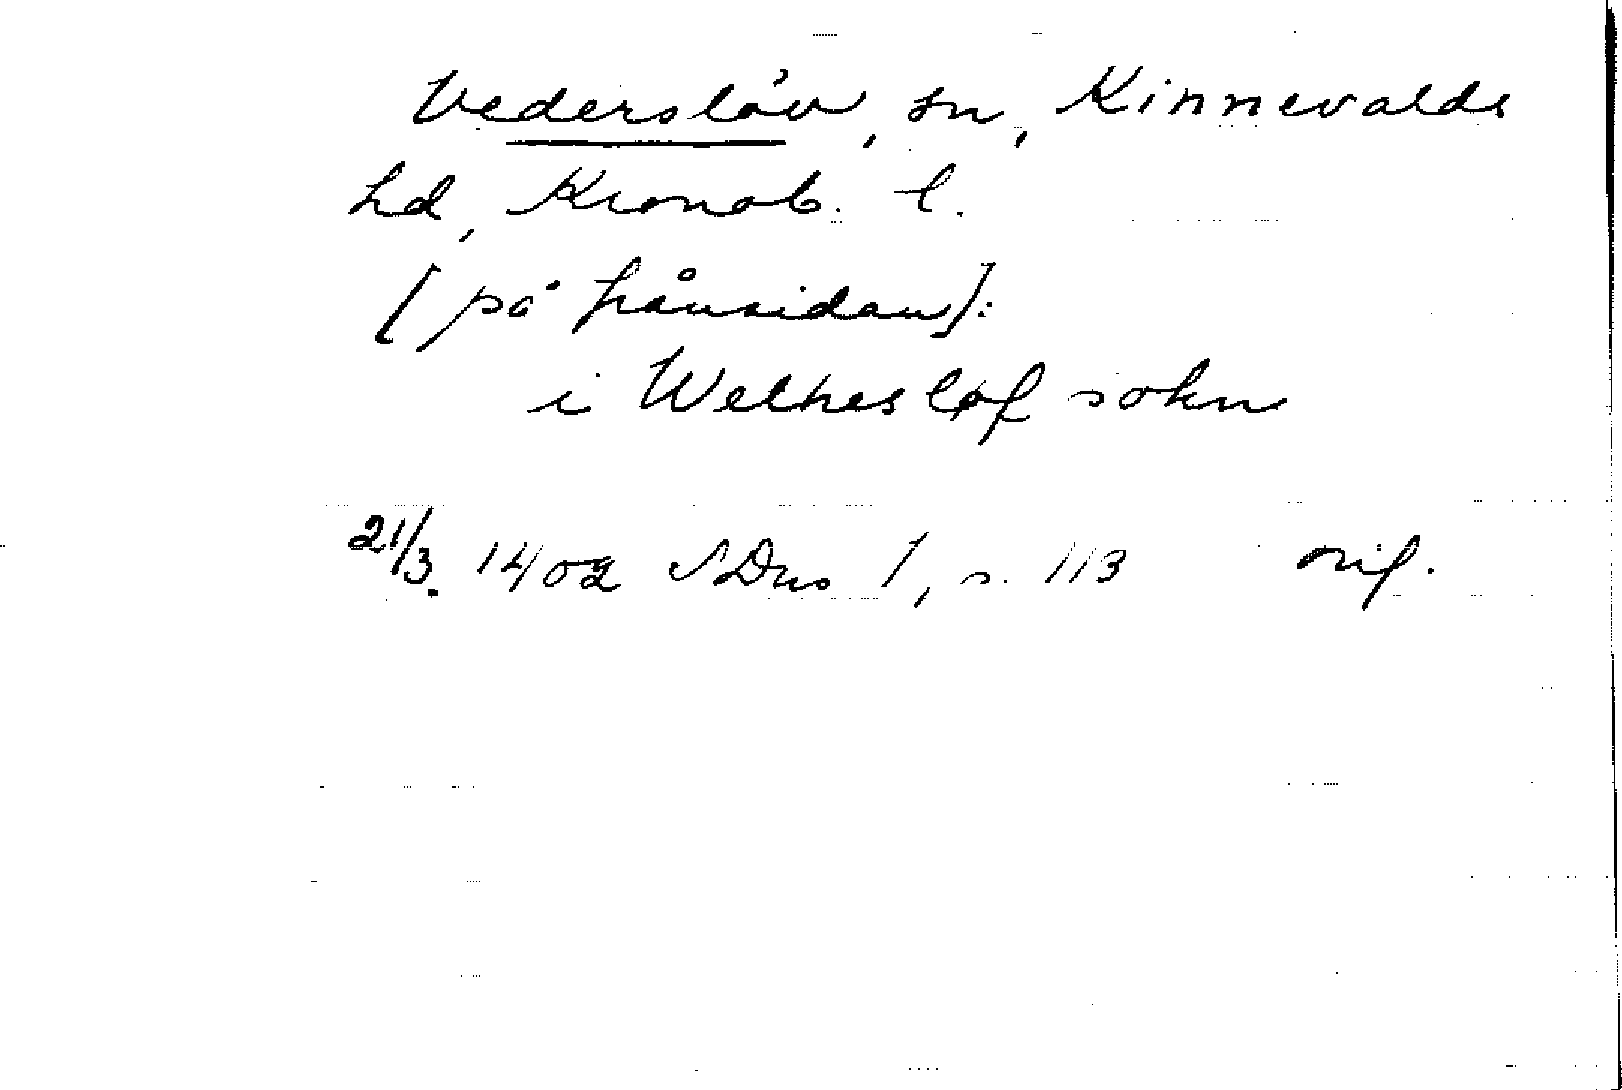 Vederslöv, sn, Kinnevalds
hd, Kronob. l.
[på frånsidan]:
i Wethesløf sokn
21/3. 1402 SDns 1, s. 113 orig.